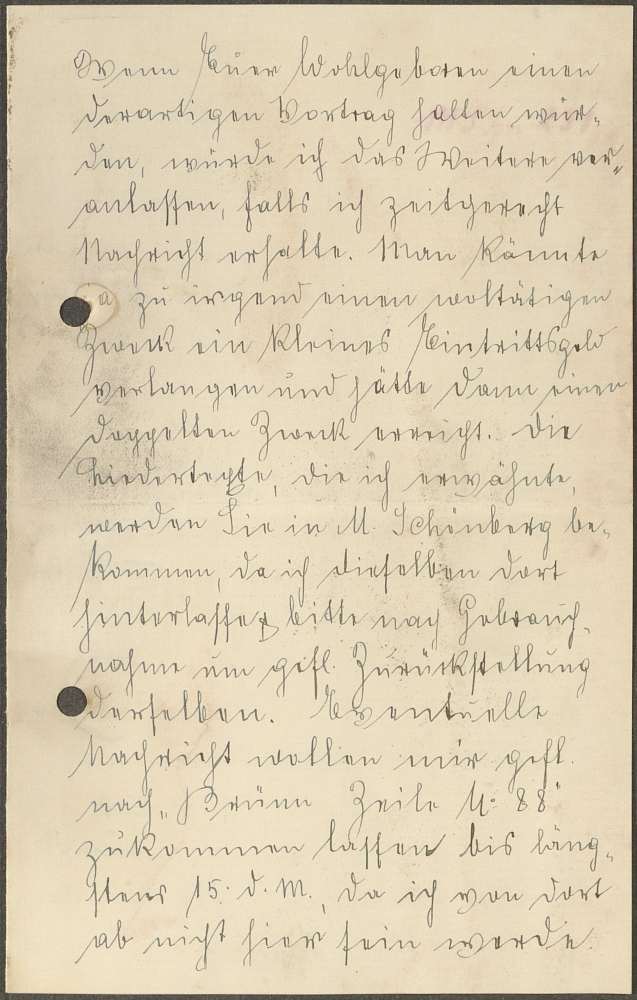 Wenn Euer Wohlgeboren einen
derartigen Vortrag halten wür-
den, würde ich das Weitere ver-
anlassen, falls ich zeitgerecht
Nachricht erhalte. Man könnte
ja zu irgend einen woltätigen
Zweck ein kleines Eintrittsgeld
verlangen und hätte dann einen
doppelten Zweck erreicht. Die
Liedertexte, die ich erwähnte,
werden Sie in M. Schönberg be-
kommen, da ich dieselben dort
hinterlasse & bitte nach Gebrauch-
nahme um gefl. Zurückstellung
derselben. Eventuelle
Nachricht wollen mir gefl.
nach „Brünn Zeile N: 88"
zukommen lassen bis läng-
stens 15. d. M., da ich von dort
ab nicht hier sein werde.